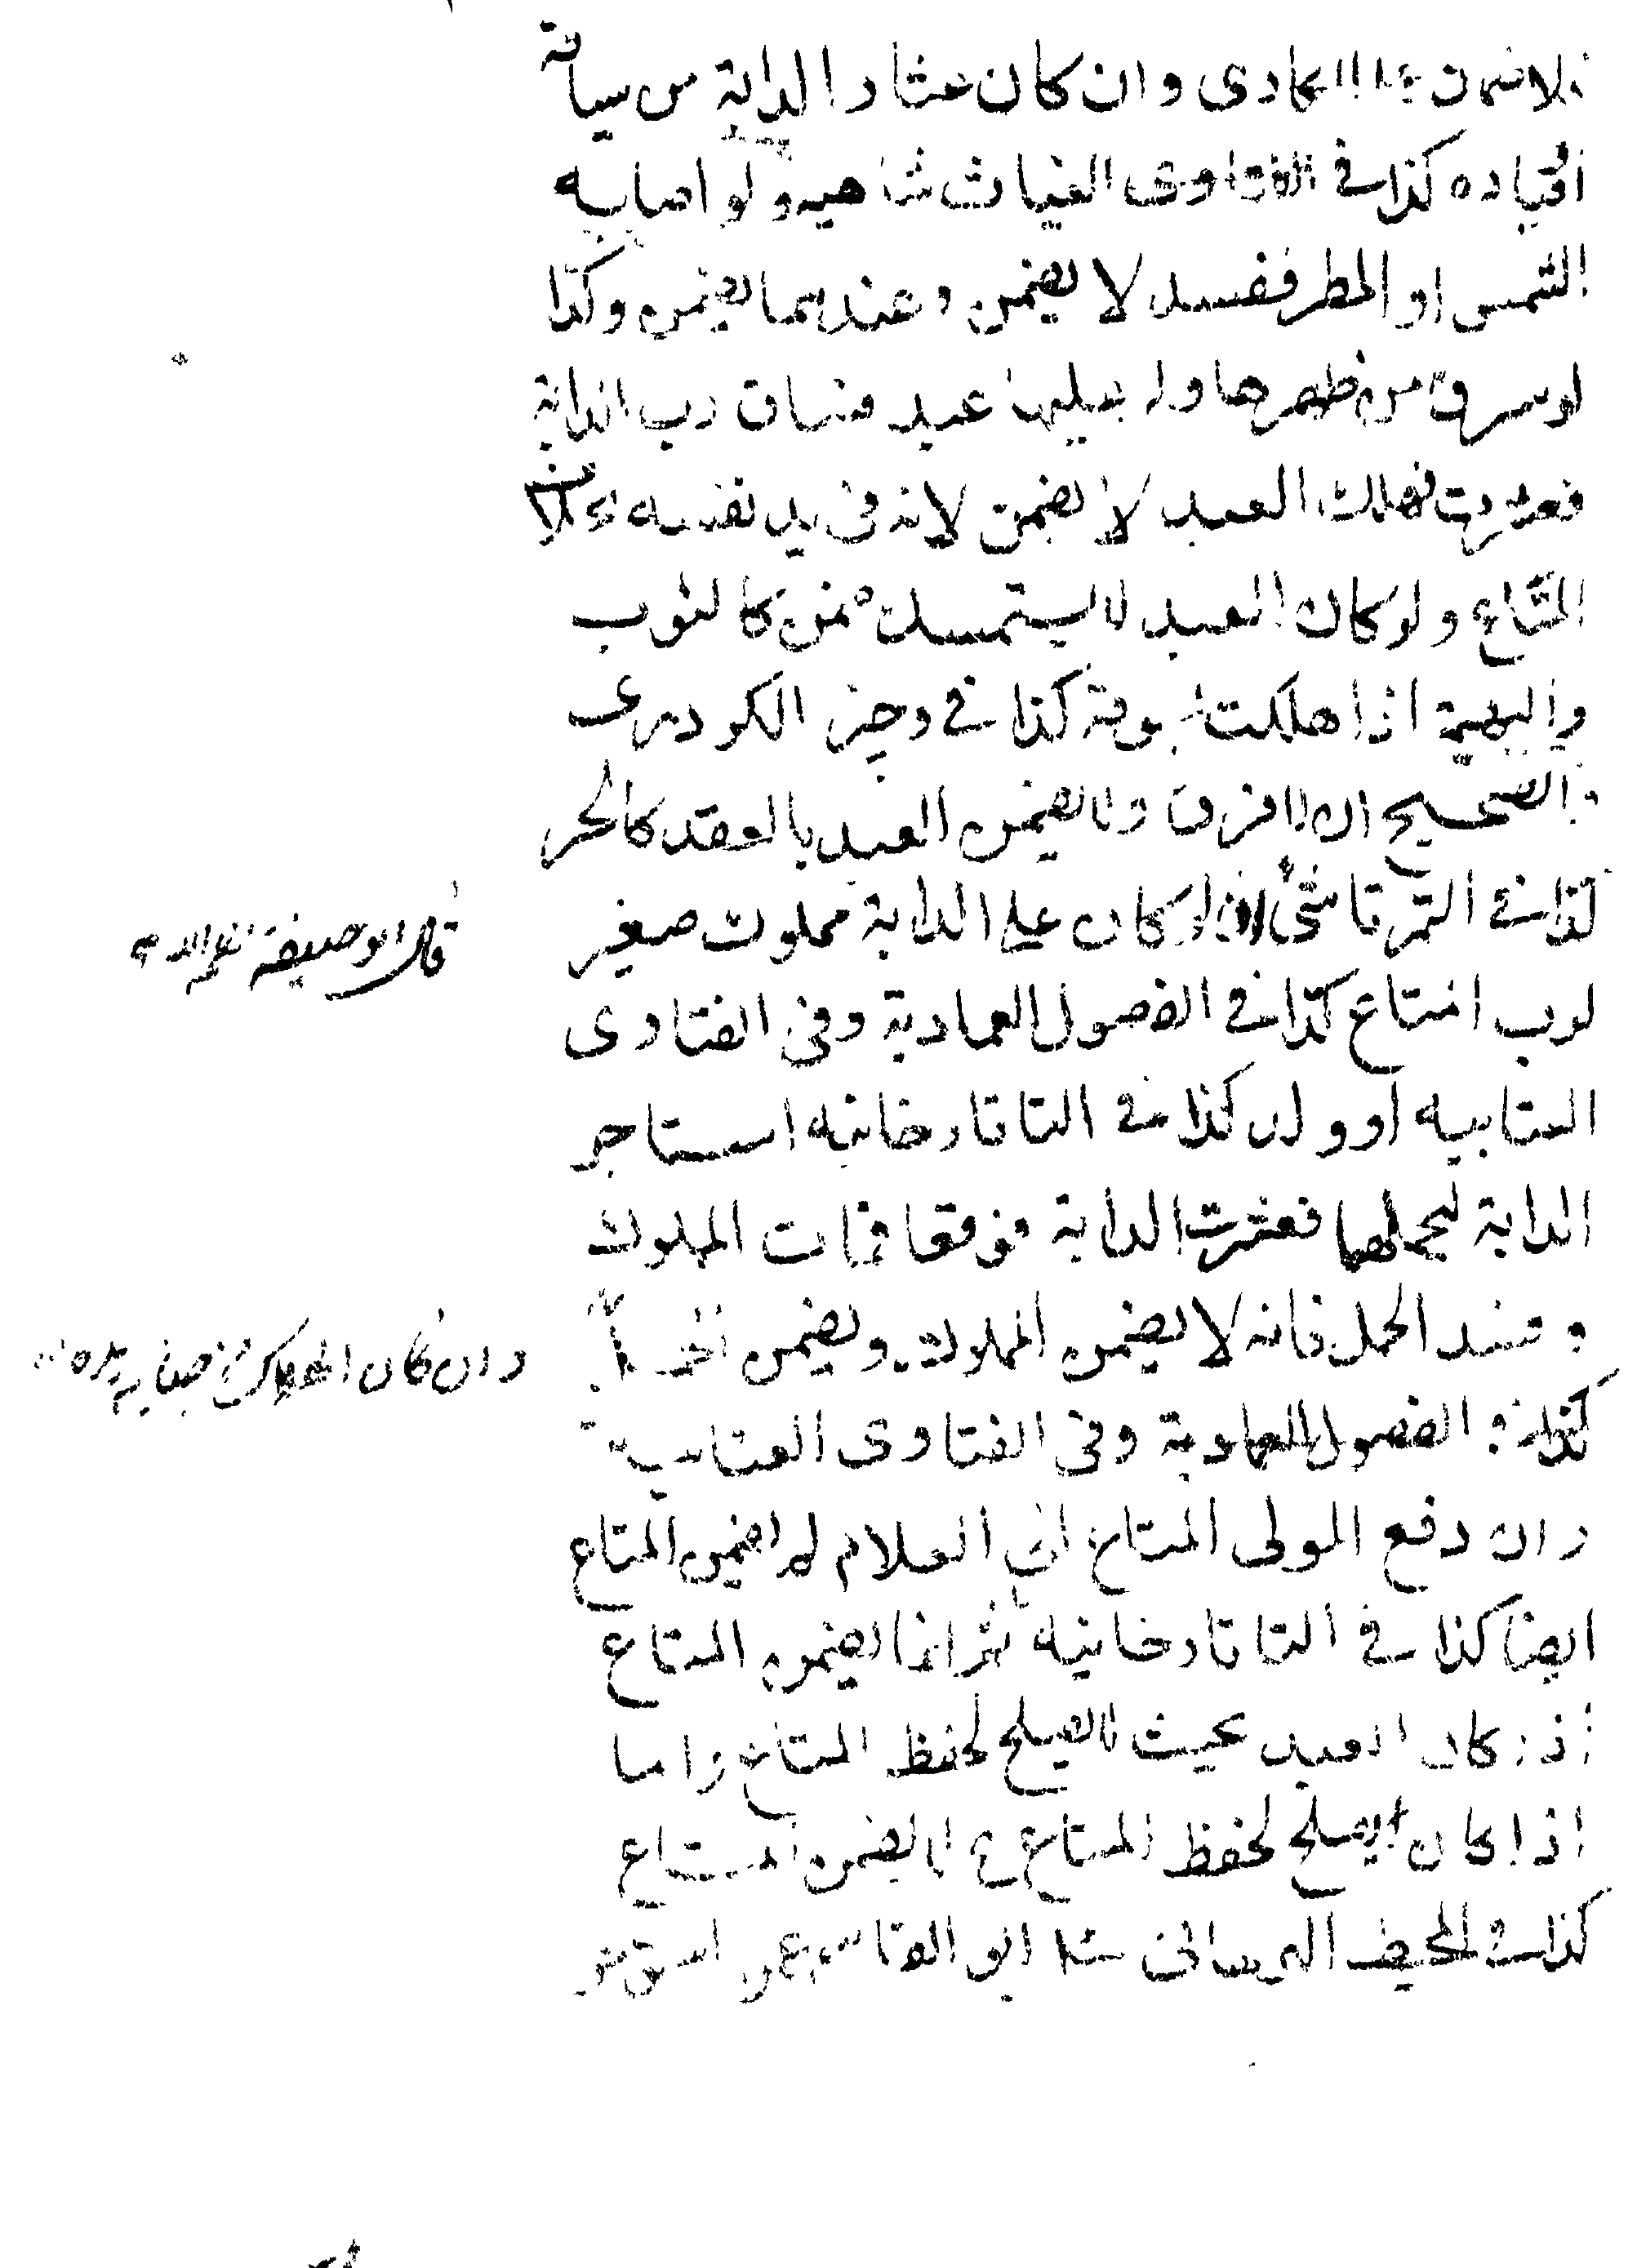 فلا ضمان على المكارى وان كان عثار الدابة من سياقه
او قياده كذا فى الفتاوى الغياث شاهيه ولو اصابه
الشمس او المطر ففسد لا يضمن وعندهما يضمن وكذا
لو سرق من ظهرها ولو عليها عبد فساق رب الدابة
فعثرت فهلك العبد لا يضمن لانه فى يد نفسه بخلاف
المتاع ولو كان العبد لا يستمسك ضمن كالثوب
والبهيمة اذا هلكت بسوقه كذا فى وجيز الكردرى
والصحيح ان لا فرق ولا يضمن العبد بالعقد كالحر
كذا فى التمرتاشى اذا كان على الدابة مملوك صغير
قال ابو حنيفة رحمه الله
لرب المتاع كذا فى الفصول العمادية وفى الفتاوى
العتابيه او ولد كذا فى التاتارخانيه استاجر
الدابة ليحملهما فعثرت الدابة فوقعا فمات المملوك
وفسد الحمل فانه لا يضمن المملوك ويضمن الحمل
وان كان الهلاك من جناية يده
كذا فى الفصول العمادية وفى الفتاوى العتابيه
وان دفع المولى المتاع الى الغلام لم يضمن المتاع
ايضا كذا فى التاتارخانيه ثم انما يضمن المتاع
اذا كان العبد بحيث لا يصلح لحفظ المتاع واما
اذا كان يصلح لحفظ المتاع لا يضمن المتاع
كذا فى المحيط البرهانى ابو القاسم عن